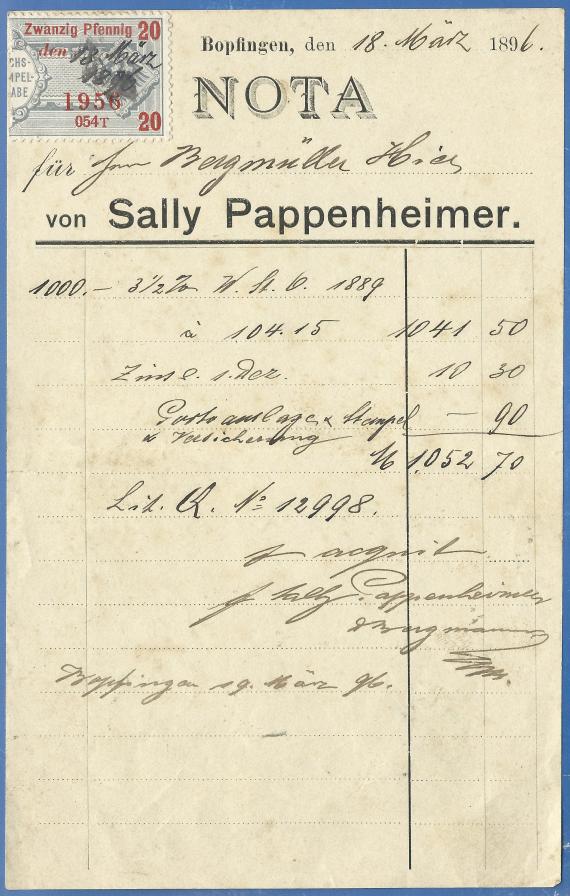 Zwanzig Pfennig 20
CHS-
MPEL-
ABE
den 18. März
1896
1956
054T 20
Bopfingen, den 18. März 1896.
NOTA
für Herrn Bergmüller Hier
von Sally Pappenheimer.
1000.- 3½% W. St. O. 1889
à 104.15 1041 50
Zins s. 1. Dez. 10 30
Porto auslage & Stempel - 90
& Versicherung
M 1,052 70
Lit. R. No 12998.
p acquit
p Sally Pappenheimer
Bopfingen 19 März 96.